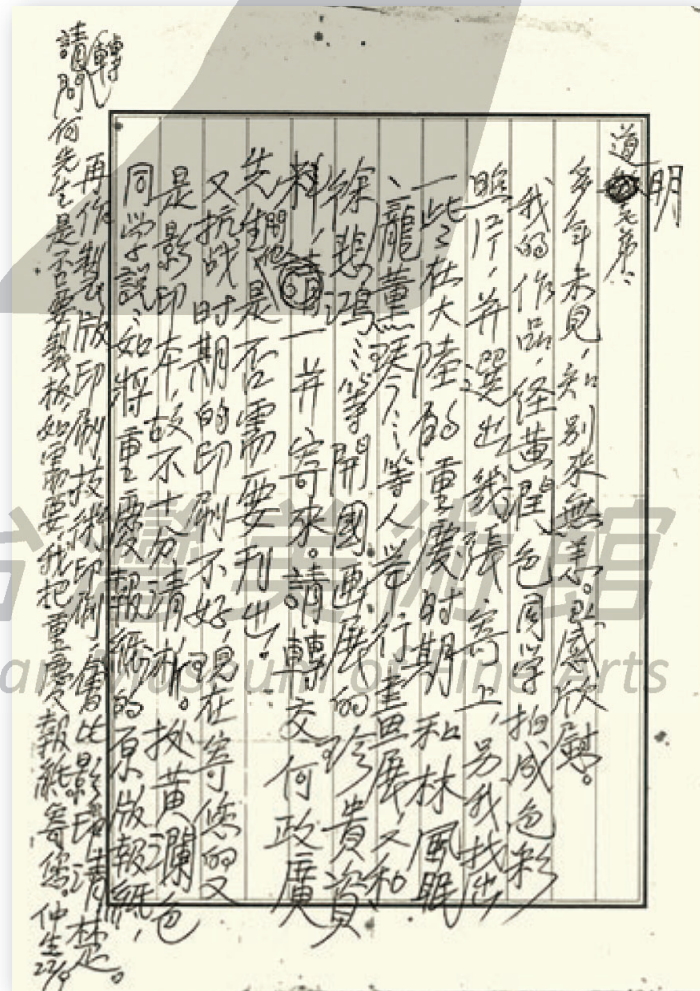 道明兄弟：
多年未見，知別來無恙。至感欣慰。
我的作品，經黃潤色同学拍成色彩
照片，并選出幾張寄上，另我找出
一些在大陸的重慶时期和林風眠
、龐薰琹……等人举行畫展，又和
徐悲鴻……等開國画展的珍貴資
料，請一并寄來。請轉交何政廣
先生問他是否需要刊出。
又抗战时期的印刷不好，現在寄您的又
是影印本，故不十分清析。按黃瀾色
同学說：如將重慶報紙的原版報紙，
再作製版印刷技術印刷，會比影印清楚。
請轉問何先生是否要製板，如需要，我把重慶報紙寄您。仲生22/9
台灣美術館
Museum of Fine Arts